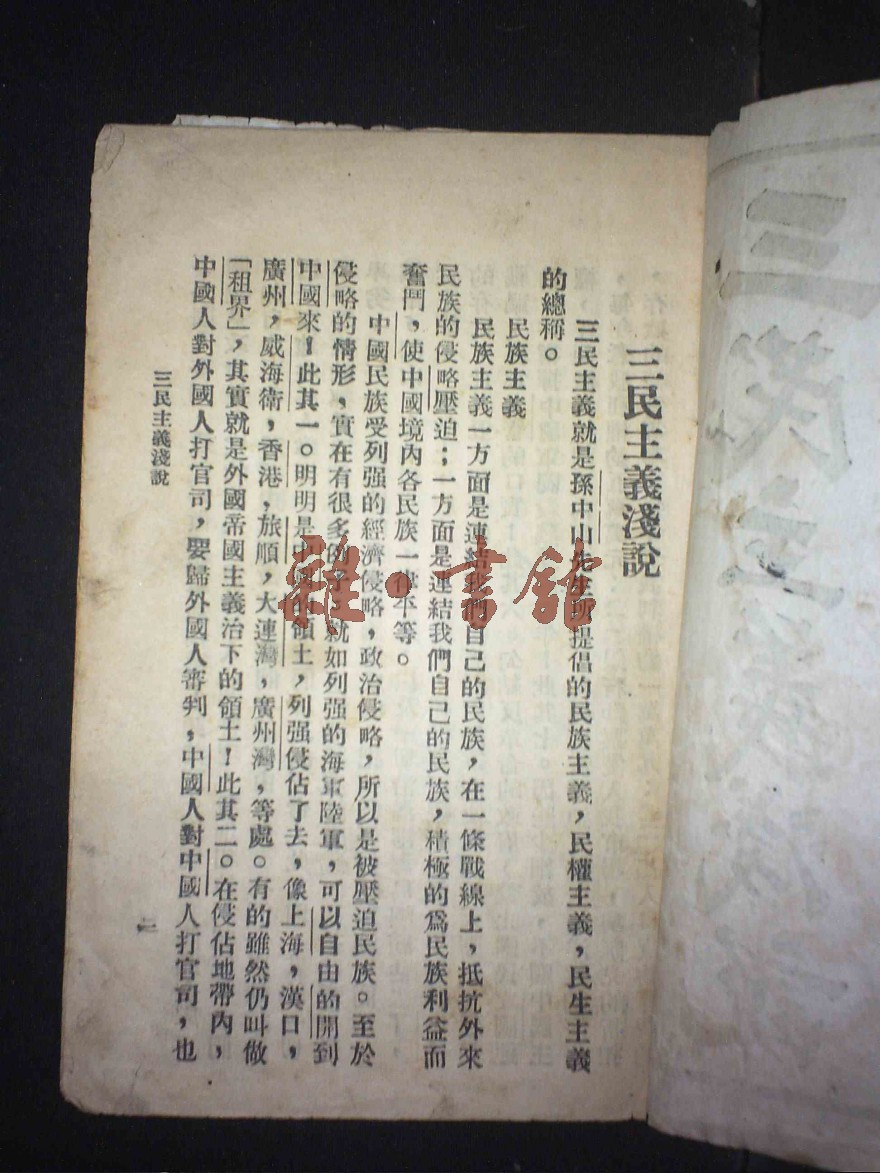 三民主義淺說
三民主義就是孫中山先生所提倡的民族主義，民權主義，民生主義
的總稱。
民族主義
民族主義一方面是連結我們自己的民族，在一條戰線上，抵抗外來
民族的侵略壓迫；一方面是連結我們自己的民族，積極的爲民族利益而
奮鬥，使中國境內各民族一律平等。
中國民族受列强的經濟侵略，政治侵略，所以是被壓迫民族。至於
侵略的情形，實在有很多的例子，就如列强的海軍陸軍，可以自由的開到
中國來！此其一。明明是中國的領土，列强侵佔了去，像上海，漢口，
廣州，威海衛，香港，旅順，大連灣，廣州灣，等處。有的雖然仍叫做
「租界」，其實就是外國帝國主義治下的領土！此其二。在侵佔地帶內，
中國人對外國人打官司，要歸外國人審判，中國人對中國人打官司，也
三民主義淺說
雜·書館